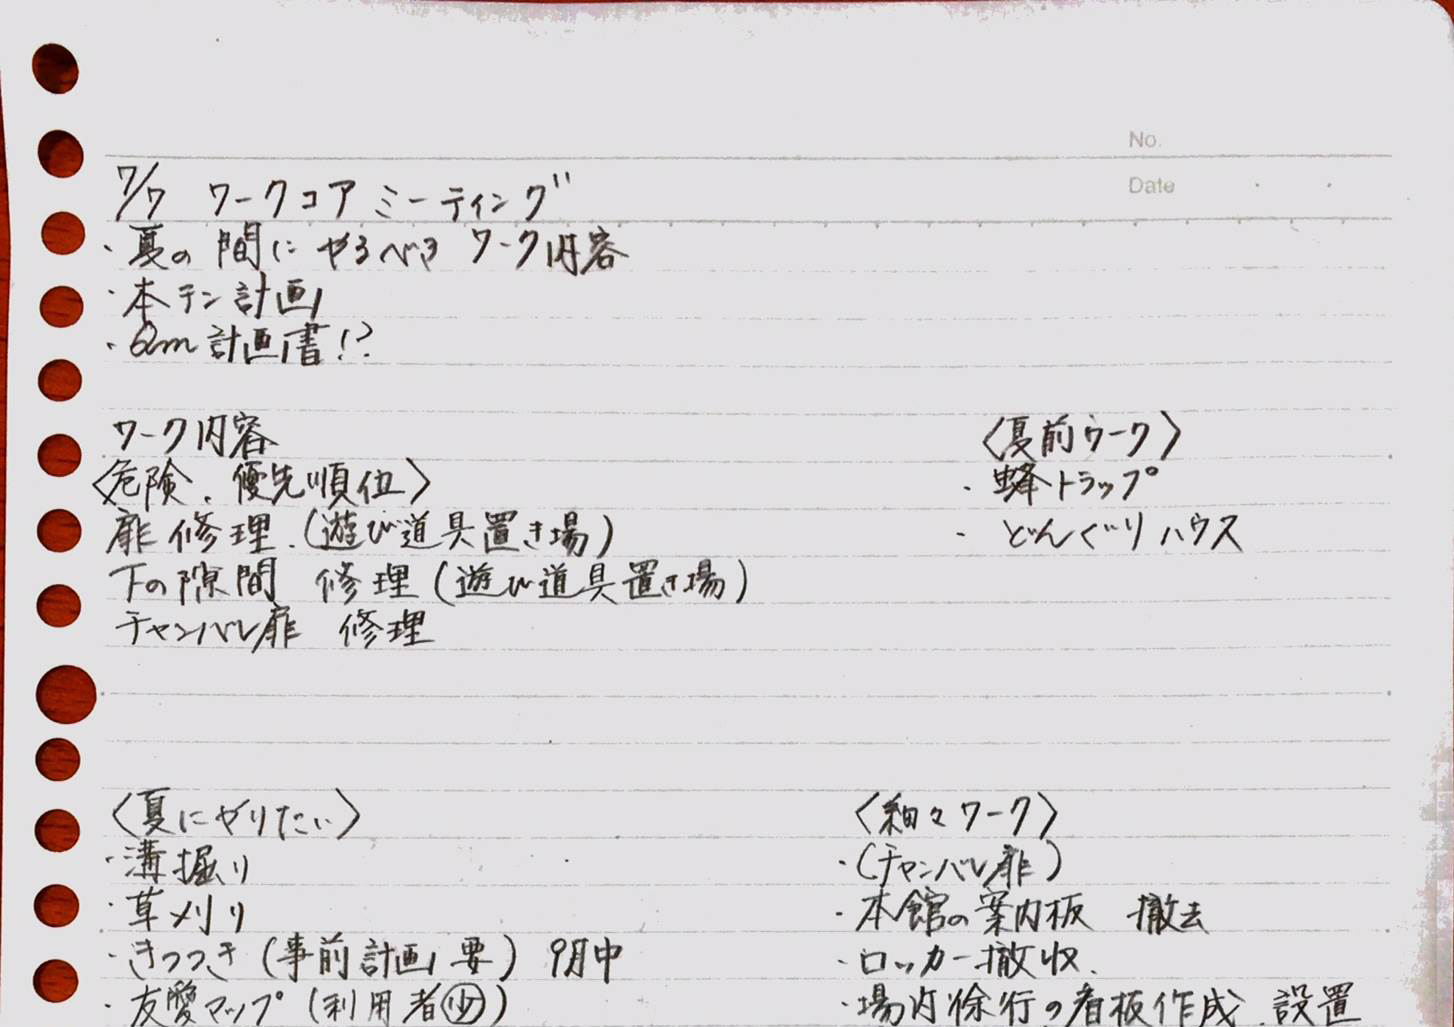 No.
Date
7/7 ワークコアミーティング
・夏の間にやるべき ワーク内容
・本テン計画
・6m計画書!?
ワーク内容
〈危険、優先順位〉
扉修理、(遊び道具置き場)
下の隙間 修理(遊び道具置き場)
チャンバレ扉 修理
〈夏前ワーク〉
・蜂トラップ
・どんぐりハウス
〈夏にやりたい〉
・溝掘り
・草刈り
・きつつき(事前計画要) 9月中
・友愛マップ(利用者少)
〈細々ワーク〉
・(チャンバレ扉)
・本館の案内板 撤去
・ロッカー撤収、
・場内徐行の看板作成、設置